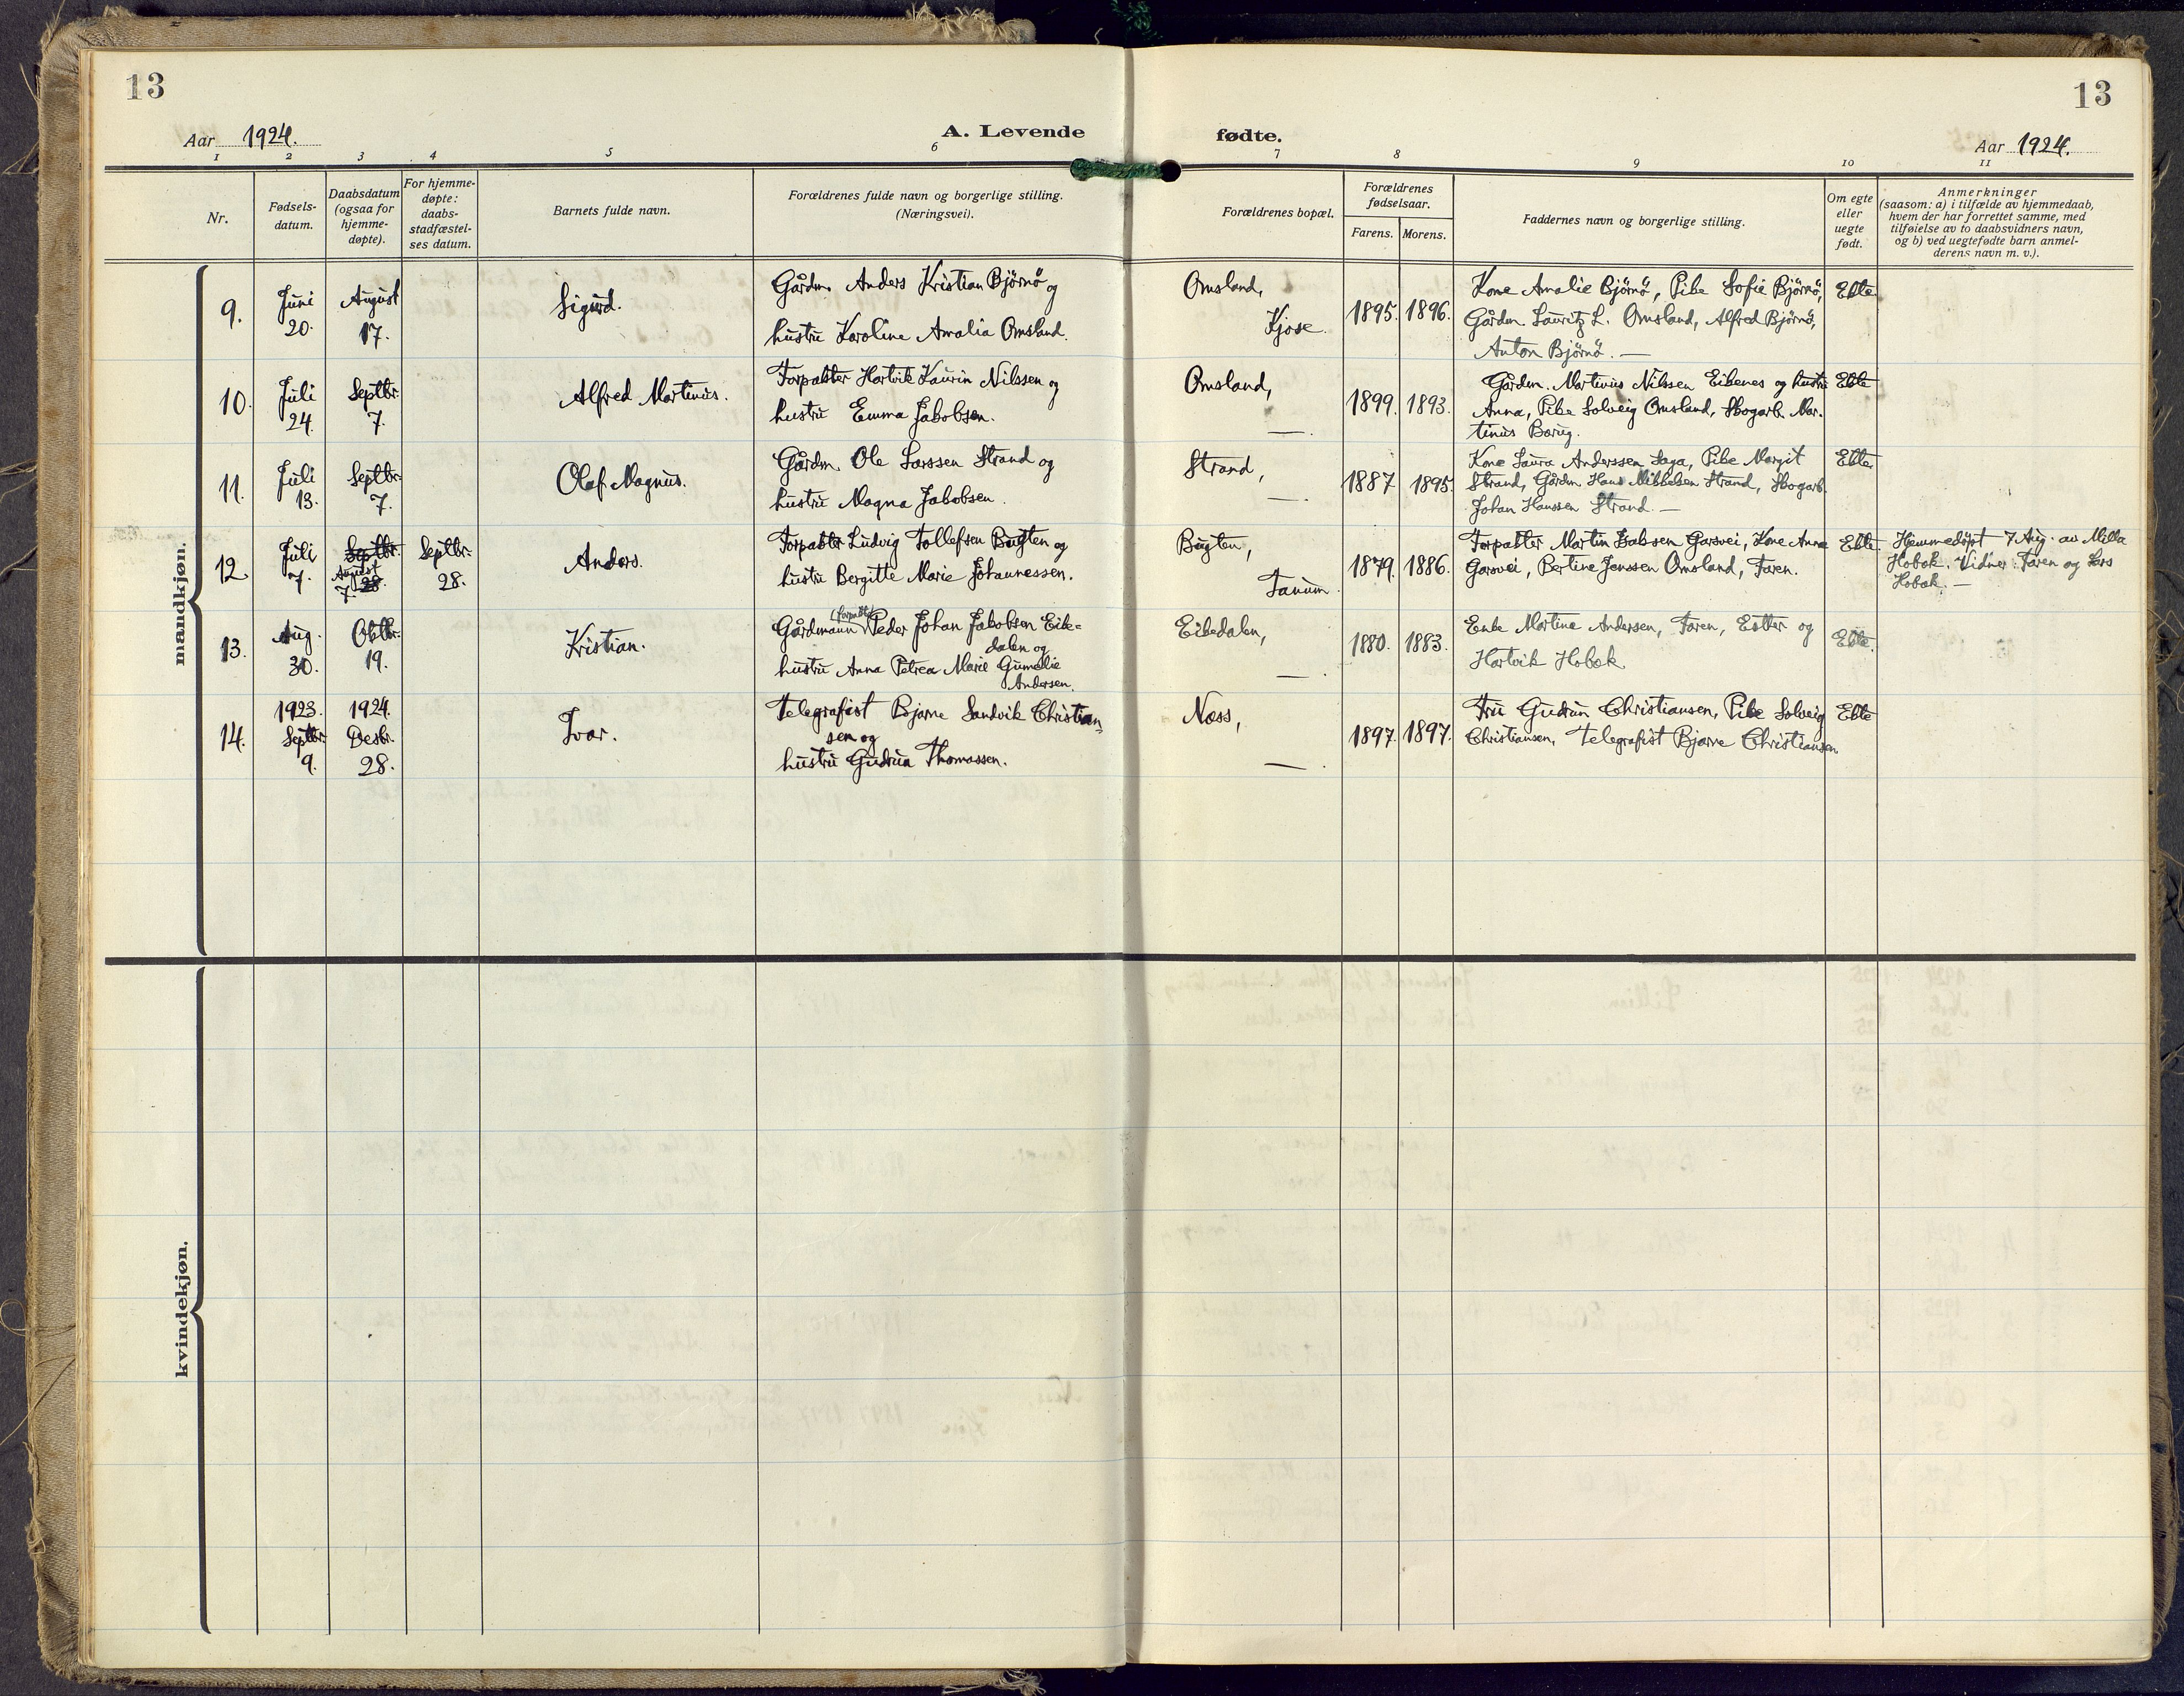 13
13
Aar 1924.
A. Levende fødte.
Aar 1924.
1 2 3 4 5 6 7 8 9 10 11
Nr.
Fødsels-
datum.
Daabsdatum
(ogsaa for
hjemme-
døpte).
For hjemme-
døpte:
daabs-
stadfæstel-
ses datum.
Barnets fulde navn.
Forældrenes fulde navn og borgerlige stilling.
(Næringsvei).
Forældrenes bopæl.
Forældrenes
fødselsaar.
Farens. Morens.
Faddernes navn og borgerlige stilling.
Om egte
eller
uegte
født.
Anmerkninger
(saasom: a) i tilfælde av hjemmedaab,
hvem der har forrettet samme, med
tilføielse av to daabsvidners navn,
og b) ved uegtefødte barn anmel-
derens navn m. v.).
mandkjøn.
9.
Juni
20.
August
17.
Sigurd.
Gårdm. Anders Kristian Bjørnø og
hustru Karoline Amalia Omsland.
Omsland,
Kjose
1895. 1896.
Kone Amalie Bjørnø, Pike Sofie Bjørnø,
Gårdm. Lauritz L. Omsland, Alfred Bjørnø,
Anton Bjørnø. —
Ekte
10.
Juli
24.
Septbr.
7.
Alfred Martinus.
Forpakter Hartvik Laurin Nilssen og
hustru Emma Jakobsen.
Omsland,
—.
1899. 1893.
Gårdm. Martinus Nilssen Eikenes og hustru
Anna, Pike Solveig Omsland, Skogarb. Mar-
tinus Barug.
Ekte
11.
Juli
13.
Septbr.
7.
Olaf Magnus.
Gårdm. Ole Larssen Strand og
hustru Magna Jakobsen.
Strand,
—.
1887 1895.
Kone Laura Anderssen Saga, Pike Margit
Strand, Gårdm Hans Mikkelsen Strand, Skogarb.
Johan Hanssen Strand. —
Ekte
12.
Juli
7.
Septbr.
August
7. 28
Septbr.
28.
Anders.
Forpakter Ludvig Tollefsen Bugten og
hustru Bergitte Marie Johannessen.
Bugten,
Tanum.
1879. 1886.
Forpakter Martin Isaksen Garsvei, Kone Anna
Garsvei, Bertine Jenssen Omsland, Faren.
Ekte.
Hjemmedøpt 7 Aug. av Milla
Hobæk. Vidner: Faren og Lars
Hobæk. —
13.
Aug.
30.
Oktbr.
19.
Kristian.
(forpakter)
Gårdmann Peder Johan Jakobsen Eike-
dalen og
hustru Anna Petrea Marie Gumelie
Andersen.
Eikedalen,
—.
1880. 1883.
Enke Martine Andersen, Faren, Ester og
Hartvik Hobæk.
Ekte.
14.
1923.
Septbr.
9.
1924.
Desbr.
28.
Ivar.
Telegrafist Bjarne Sandvik Christian-
sen og
hustru Gudrun Thomassen.
Næss,
—.
1897. 1897.
Fru Gudrun Christiansen, Pike Solveig
Christiansen, Telegrafist Bjarne Christiansen.
Ekte
kvindekjøn.